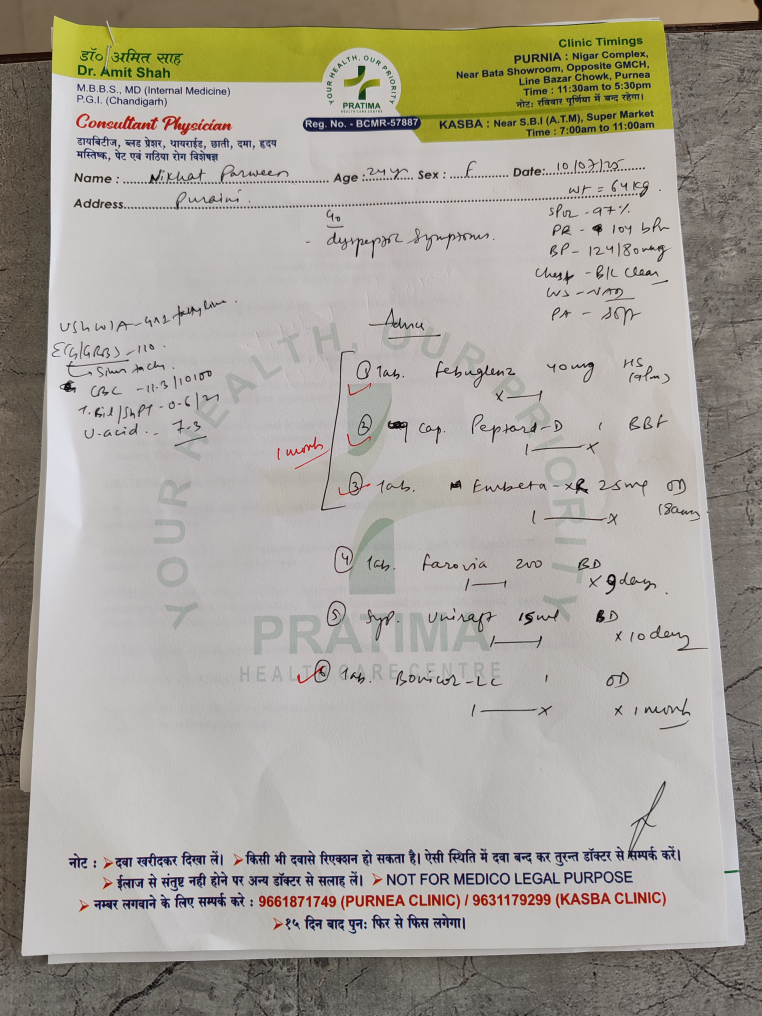 डॉ० अमित साह
Dr. Amit Shah
M.B.B.S., MD (Internal Medicine)
P.G.I. (Chandigarh)
Consultant Physician
डायबिटीज, ब्लड प्रेशर, थायराईड, छाती, दमा, हृदय
मस्तिष्क, पेट एवं गठिया रोग विशेषज्ञ
YOUR HEALTH, OUR PRIORITY
PRATIMA
HEALTH CARE CENTRE
Reg. No. - BCMR-57887
Clinic Timings
PURNIA : Nigar Complex,
Near Bata Showroom, Opposite GMCH,
Line Bazar Chowk, Purnea
Time : 11:30am to 5:30pm
नोट: रविवार पूर्णिया में बन्द रहेगा।
KASBA : Near S.B.I (A.T.M), Super Market
Time : 7:00am to 11:00am
Name : Nikhat Parween Age : 24 yr Sex : F Date: 10/07/25
Address Puraini
WT = 64 kg.
C/o
- dyspeptic symptoms.
SPO2 - 97%
PR - 104 bPM
BP - 124/80
Chest - B/L clear
PA - soft
USG W/A -
ECG/GRBS - 110
Sinus tachy
CBC - 11.3/10100
T. Bil/SGPT - 0.6/21
U-acid - 7.3
Advice
1 month
① Tab. Febuglenz 40mg HS (9pm)
x—1
② cap. Peptard-D 1 BBF
1—x
③ Tab. Embeta-XR 25mg OD (8am)
1—x
④ Tab. Farovia 200 BD
1—1 x 9 days
⑤ Syp. Uniraft 15ml BD
1—1 x 10 days
⑥ Tab. Bonicor-LC 1 OD
1—x x 1 month
YOUR HEALTH, OUR PRIORITY
PRATIMA
HEALTH CARE CENTRE
नोट : ➢दवा खरीदकर दिखा लें। ➢किसी भी दवासे रिएक्शन हो सकता है। ऐसी स्थिति में दवा बन्द कर तुरन्त डॉक्टर से सम्पर्क करें।
➢ईलाज से संतुष्ट नही होने पर अन्य डॉक्टर से सलाह लें। ➢NOT FOR MEDICO LEGAL PURPOSE
➢नम्बर लगवाने के लिए सम्पर्क करे : 9661871749 (PURNEA CLINIC) / 9631179299 (KASBA CLINIC)
➢१५ दिन बाद पुनः फिर से फिस लगेगा।